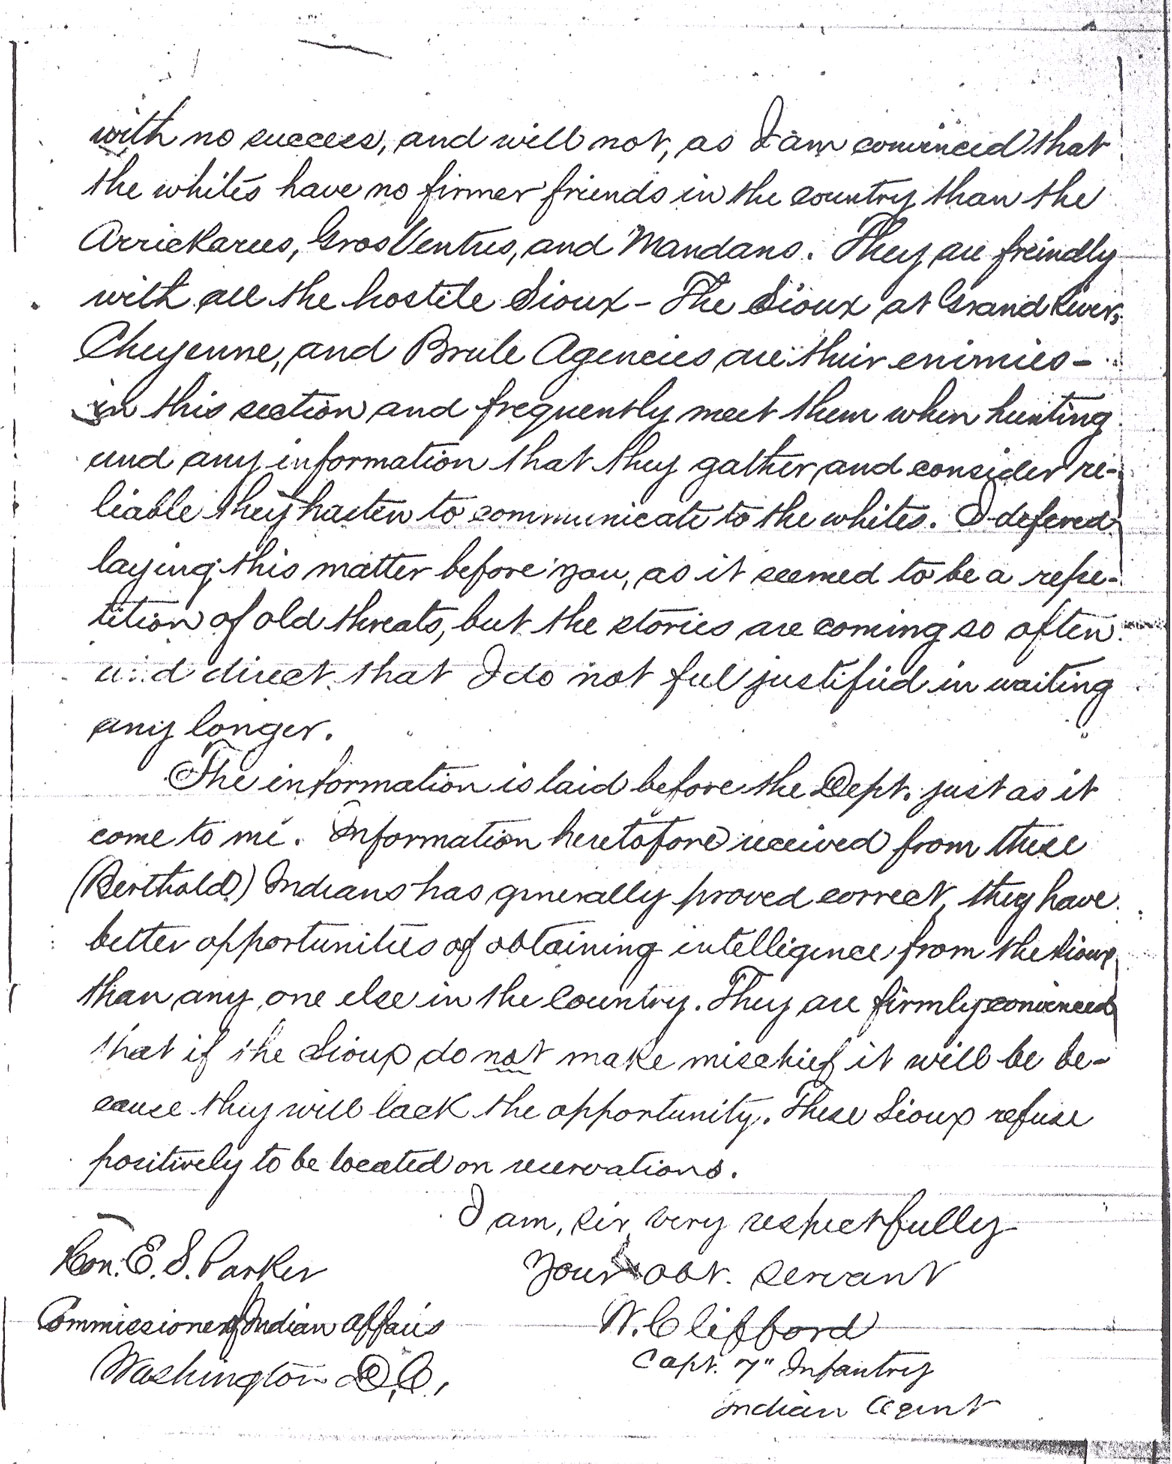 with no success, and will not, as I am convinced that
the whites have no firmer friends in the country than the
Arrickarees, Gros Ventres, and Mandans. They are freindly
with all the hostile Sioux - The Sioux at Grand River,
Cheyenne, and Brule Agencies are their enimies -
in this section and frequently meet them when hunting
and any information that they gather and consider re-
liable they hasten to communicate to the whites. I defered
laying this matter before you, as it seemed to be a repe-
tition of old threats, but the stories are coming so often
and direct that I do not feel justified in waiting
any longer.
The information is laid before the Dept. just as it
come to me. Information heretofore received from these
(Berthold) Indians has generally proved correct, they have
better opportunities of obtaining intelligence from the Sioux
than any one else in the country. They are firmly convinced
that if the Sioux do not make mischief it will be be-
cause they will lack the opportunity. These Sioux refuse
positively to be located on reservations.
I am, sir, very respectfully
Your obt. servant
W. Clifford
Capt. 7" Infantry
Indian Agent
Hon. E. S. Parker
Commissioner of Indian Affairs
Washington D.C.,